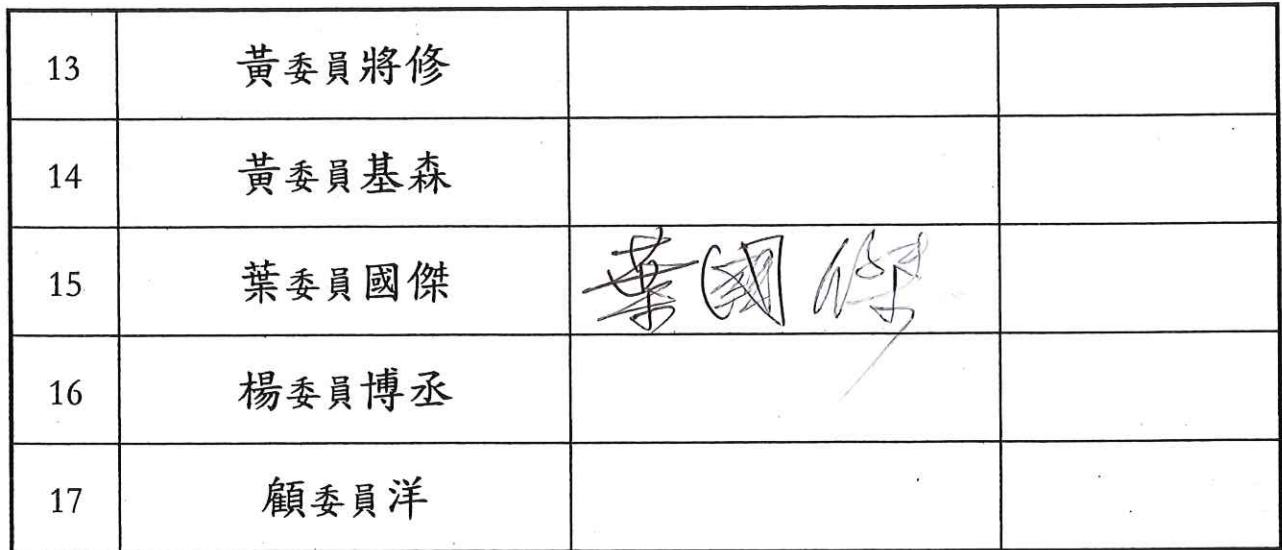 13 黃委員將修
14 黃委員基森
15 葉委員國傑 葉國傑
16 楊委員博丞
17 顧委員洋